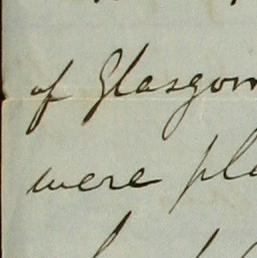 of Glasgow
were pla